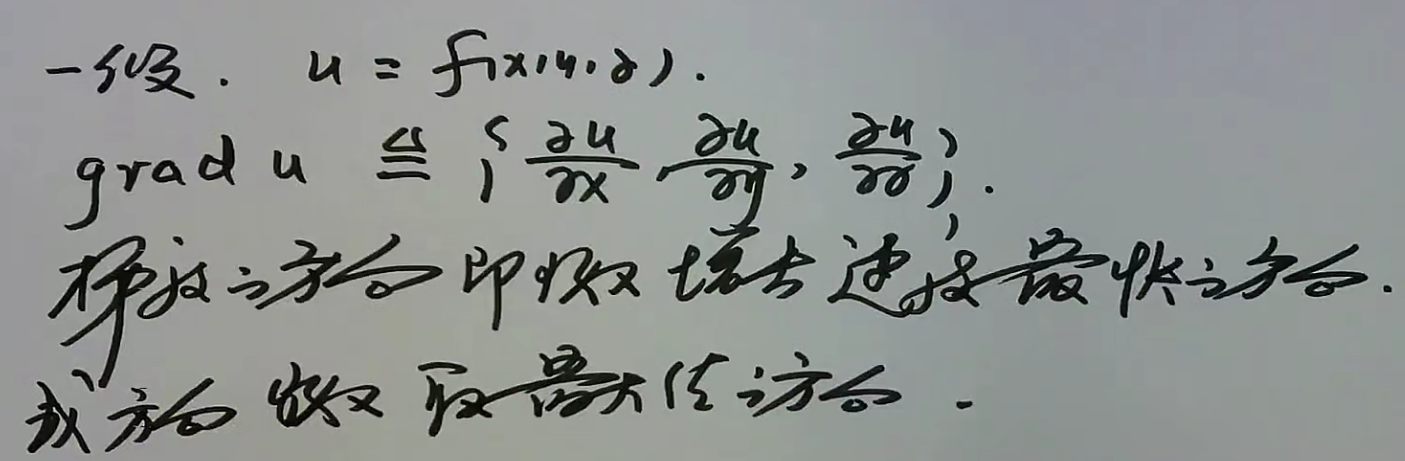 一般. u = f(x,y,z).
grad u ≜ {∂u/∂x, ∂u/∂y, ∂u/∂z}.
梯度之方向即函数增长速度最快之方向.
或方向导数取最大值之方向.